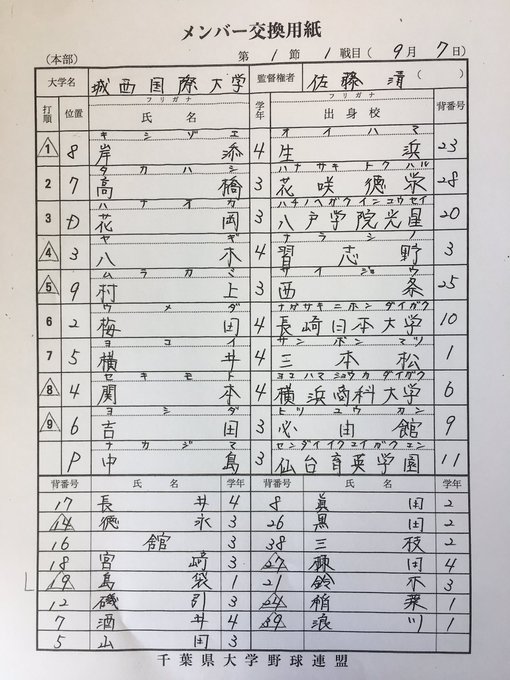 メンバー交換用紙
(本部) 第 1 節 1 戦目 ( 9 月 7 日)
大学名 城西国際大学 監督権者 佐藤 清 ( )
打順 位置 フリガナ 氏名 学年 フリガナ 出身校 背番号
キシゾエ オイハマ
1 8 岸添 4 生浜 23
タカハシ ハナサキトクハル
2 7 高橋 3 花咲徳栄 28
ハナオカ ハチノヘガクインコウセイ
3 D 花岡 3 八戸学院光星 20
ヤギ ナラシノ
4 3 八木 4 習志野 3
ムラカミ サイジョウ
5 9 村上 3 西条 25
ウメダ ナガサキニホンダイガク
6 2 梅田 4 長崎日本大学 10
ヨコイ サンボンマツ
7 5 横井 4 三本松 1
セキモト ヨコハマショウカダイガク
8 4 関本 4 横浜商科大学 6
ヨシダ ヒツユウカン
9 6 吉田 3 必由館 9
ナカジマ センダイイクエイガクエン
P 中島 3 仙台育英学園 11
背番号 氏名 学年 背番号 氏名 学年
17 長井 4 8 眞田 2
14 徳永 3 26 黒田 2
16 館 3 38 三枝 2
18 宮崎 3 27 穂田 4
19 島袋 1 21 鈴木 3
12 磯引 3 24 稲葉 1
7 酒井 4 39 浪川 1
5 山田 3
千葉県大学野球連盟